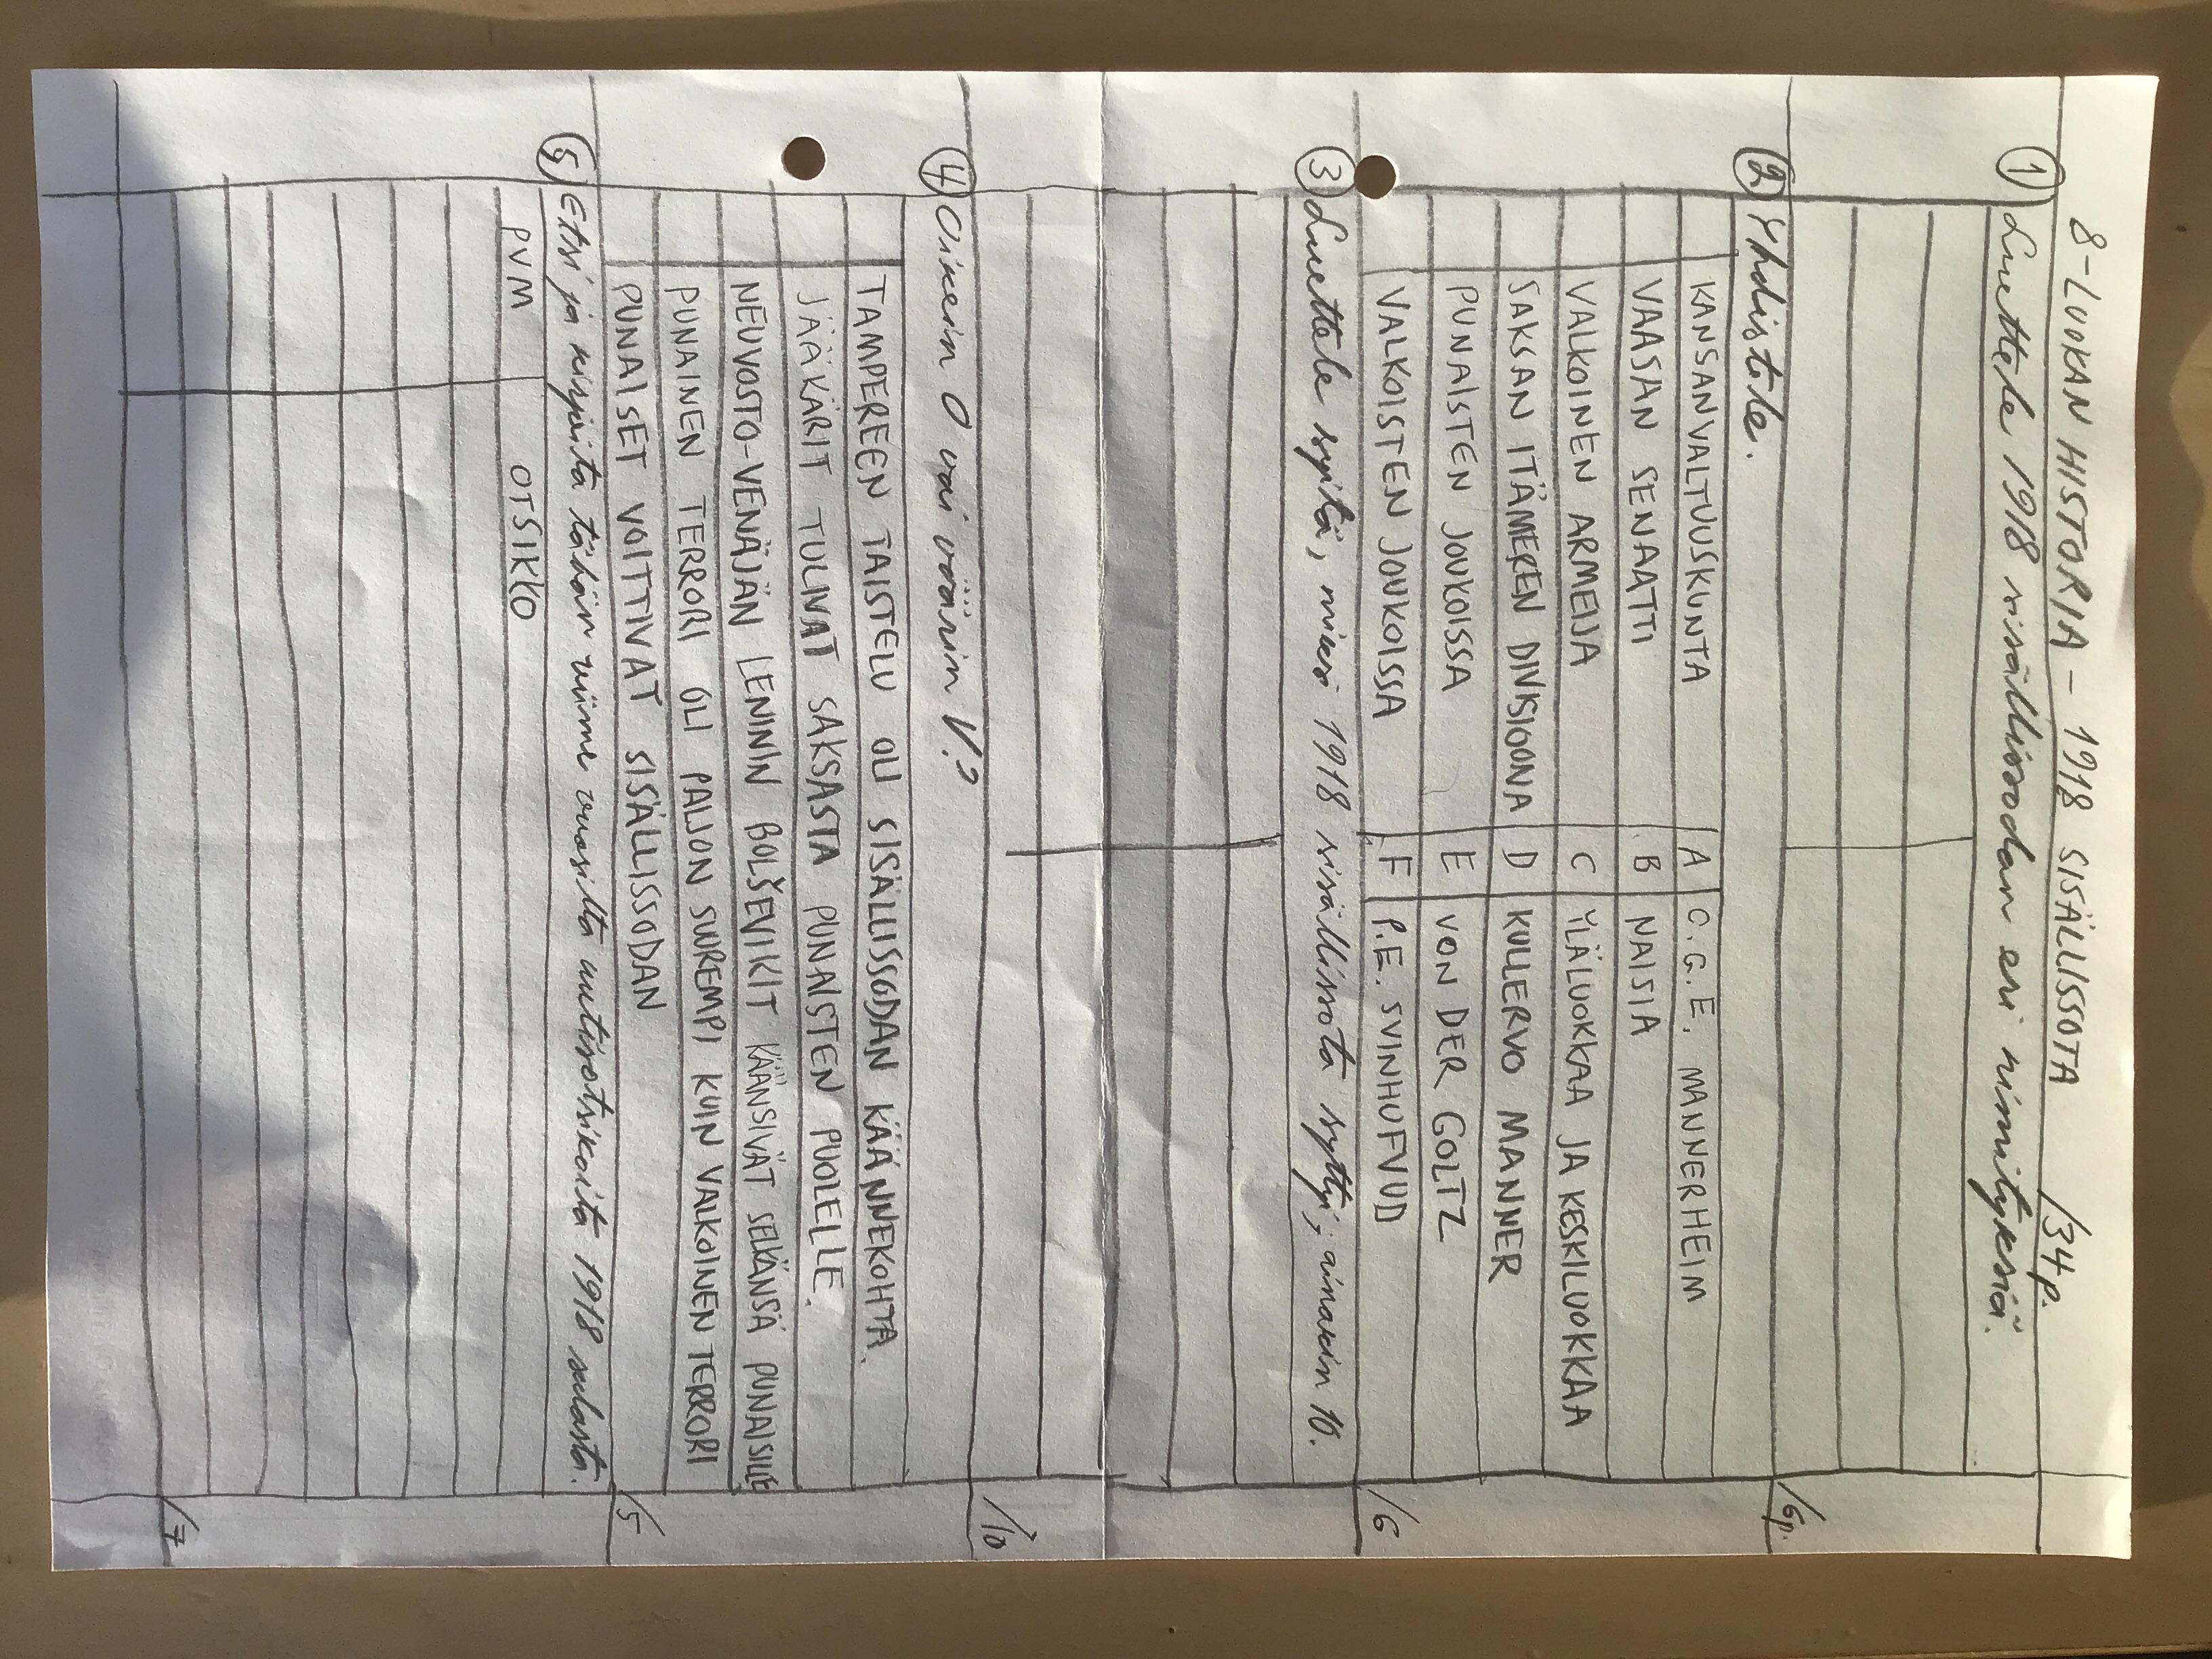 8-LUOKAN HISTORIA - 1918 SISÄLLISSOTA /34p.
① Luettele 1918 sisällissodan eri nimityksiä.
/6p.
② Yhdistele.
KANSANVALTUUSKUNTA A C.G.E. MANNERHEIM
VAASAN SENAATTI B NAISIA
VALKOINEN ARMEIJA C YLÄLUOKKAA JA KESKILUOKKAA
SAKSAN ITÄMEREN DIVISIOONA D KULLERVO MANNER
PUNAISTEN JOUKOISSA E VON DER GOLTZ
VALKOISTEN JOUKOISSA F P.E. SVINHUFVUD
/6
③ Luettele syitä, miksi 1918 sisällissota syttyi, ainakin 10.
/10
④ Oikein O vai väärin V?
TAMPEREEN TAISTELU OLI SISÄLLISSODAN KÄÄNNEKOHTA.
JÄÄKÄRIT TULIVAT SAKSASTA PUNAISTEN PUOLELLE.
NEUVOSTO-VENÄJÄN LENININ BOLŠEVIKIT KÄÄNSIVÄT SELKÄNSÄ PUNAISILLE
PUNAINEN TERRORI OLI PALJON SUUREMPI KUIN VALKOINEN TERRORI
PUNAISET VOITTIVAT SISÄLLISSODAN
/5
⑤ Etsi ja kirjoita tähän viime vuosilta uutisotsikoita 1918 sodasta.
PVM OTSIKKO
/7